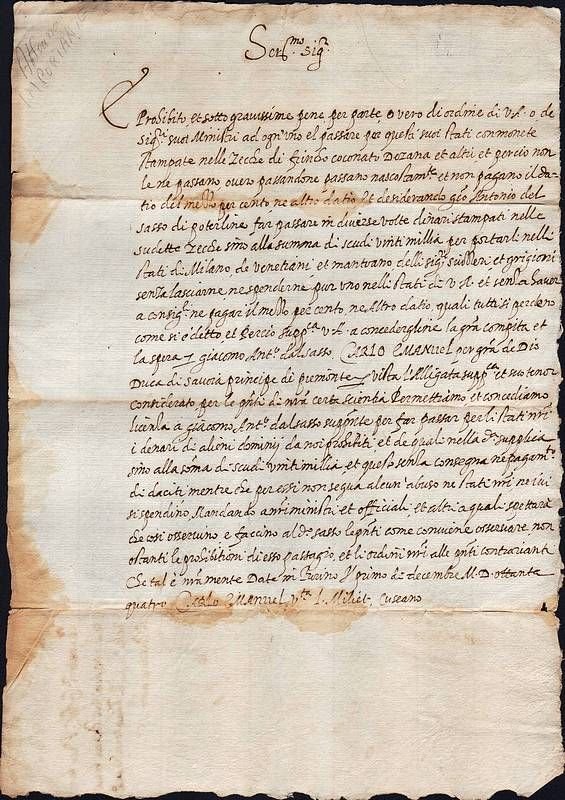 Ser.mo Sig.r
E Prohibito, et sotto gravissime pene per parte o vero di ordine di V.A. o, de
sig.ri suoi Ministri ad ogn'uno el passare per questi suoi stati con monete
stampate nelle Zecche di coconato Dezana et altri et percio non
le ne passano, overo passandone passano nascostam.te et non pagano il da-
tio del mezzo per cento ne altro datio Et desiderando gio Antonio del
sasso di poterline far passare in diverse volte denari stampati nelle
sudette Zecche sino alla summa di scudi vinti millia per portarli nelli
stati di Milano de venetiani et mantuano delli sig.ri suizzeri et grigioni
senza lasciarne ne spenderne pur uno nelli stati di V.A. et senza haver
a consig.re ne pagar il mezzo per cento, ne Altro datio, quali tutti si perdeno
come si è detto, et Percio supp.ca V.A. a concedergliene la gra compita et
la spera giacomo Ant.o dal sasso, CARLO EMANUEL per gra de Dio
Duca di savoia principe di piemonte vista l'Alligata supp.ca et suo tenor
considerato per le pnti di nra certa scientia Permettiamo et concediamo
licenza a giacomo Ant.o dal sasso supp.nte per far passar per li stati nri
i denari di alieni dominij da noi prohibiti et de quai nella d.a supplica
sino alla soma di scudi vinti millia et questo senza consegna ne pagam.to
di daciti mentre che per essi non segua alcun abuso ne stati nri ne ivi
si spendino, Mandando a nri ministri et officiali et altri a quali spettara
che cosi osservino, e faccino al d.o sasso le pnti come conviene osservare non
ostanti le prohibitioni di esso passagio, et li ordini nri alle pnti contrarianti
Che tal è nra mente Date in Turino Il primo di decembre M.D. ottanta
quatro Carlo Emanuel v.ta Milliet, Cuseano